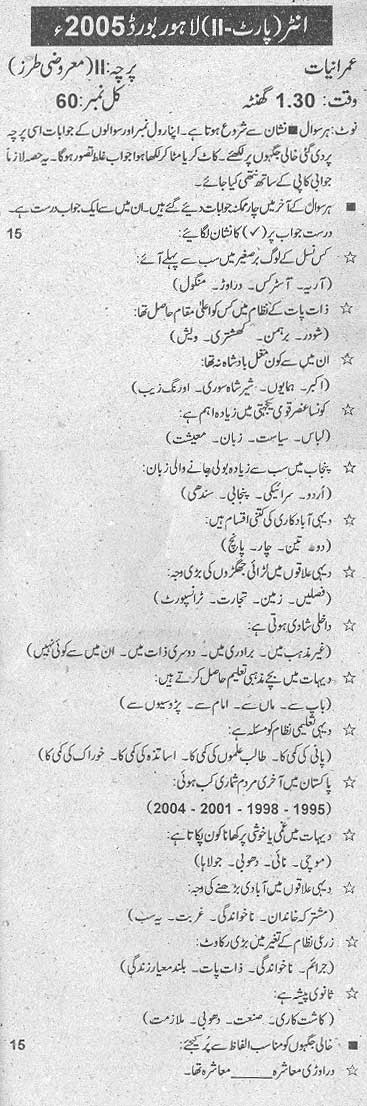 انٹر (پارٹ-II) لاہور بورڈ 2005ء
عمرانیات پرچہ: II (معروضی طرز)
وقت: 1.30 گھنٹہ کل نمبر: 60
نوٹ: ہر سوال ■ نشان سے شروع ہوتا ہے۔ اپنا رول نمبر اور سوالوں کے جوابات اسی پرچہ
پر دی گئی خالی جگہوں پر لکھئے۔ کاٹ کر یا مٹا کر لکھا ہوا جواب غلط تصور ہوگا۔ یہ حصہ لازماً
جوابی کاپی کے ساتھ نتھی کیا جائے۔
■ ہر سوال کے آخر میں چار ممکنہ جوابات دیئے گئے ہیں۔ ان میں سے ایک جواب درست ہے۔
درست جواب پر (✓) کا نشان لگائیے: 15
☆ کس نسل کے لوگ برصغیر میں سب سے پہلے آئے:
(آریہ۔ آسٹرکس۔ دراوڑ۔ منگول)
☆ ذات پات کے نظام میں کس کو اعلیٰ مقام حاصل تھا:
(شودر۔ برہمن۔ کھشتری۔ ویش)
☆ ان میں سے کون مغل بادشاہ نہ تھا:
(اکبر۔ ہمایوں۔ شیر شاہ سوری۔ اورنگ زیب)
☆ کونسا عنصر قومی یکجہتی میں زیادہ اہم ہے:
(لباس۔ سیاست۔ زبان۔ معیشت)
☆ پنجاب میں سب سے زیادہ بولی جانے والی زبان:
(اُردو۔ سرائیکی۔ پنجابی۔ سندھی)
☆ دیہی آبادکاری کی کتنی اقسام ہیں:
(دو۔ تین۔ چار۔ پانچ)
☆ دیہی علاقوں میں لڑائی جھگڑوں کی بڑی وجہ:
(فصلیں۔ زمین۔ تجارت۔ ٹرانسپورٹ)
☆ داخلی شادی ہوتی ہے:
(غیر مذہب میں۔ برادری میں۔ دوسری ذات میں۔ ان میں سے کوئی نہیں)
☆ دیہات میں بچے مذہبی تعلیم حاصل کرتے ہیں:
(باپ سے۔ ماں سے۔ امام سے۔ پڑوسیوں سے)
☆ دیہی تعلیمی نظام کو مسئلہ ہے:
(پانی کی کمی کا۔ طالب علموں کی کمی کا۔ اساتذہ کی کمی کا۔ خوراک کی کمی کا)
☆ پاکستان میں آخری مردم شماری کب ہوئی:
(1995 - 1998 - 2001 - 2004)
☆ دیہات میں غمی یا خوشی پر کھانا کون پکاتا ہے:
(موچی۔ نائی۔ دھوبی۔ جولاہا)
☆ دیہی علاقوں میں آبادی بڑھنے کی وجہ:
(مشترکہ خاندان۔ ناخواندگی۔ غربت۔ یہ سب)
☆ زرعی نظام کے تغیر میں بڑی رکاوٹ:
(جرائم۔ ناخواندگی۔ ذات پات۔ بلند معیار زندگی)
☆ ثانوی پیشہ ہے:
(کاشت کاری۔ صنعت۔ دھوبی۔ ملازمت)
■ خالی جگہوں کو مناسب الفاظ سے پُر کیجئے: 15
☆ دراوڑی معاشرہ ____ معاشرہ تھا۔